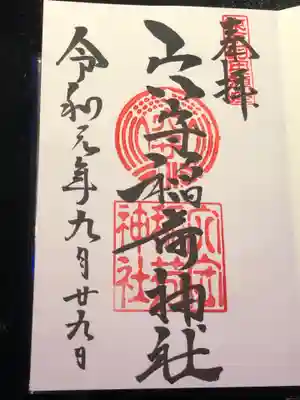 奉拝
穴守稲荷神社
令和元年九月廿九日
穴守
稲荷
神社